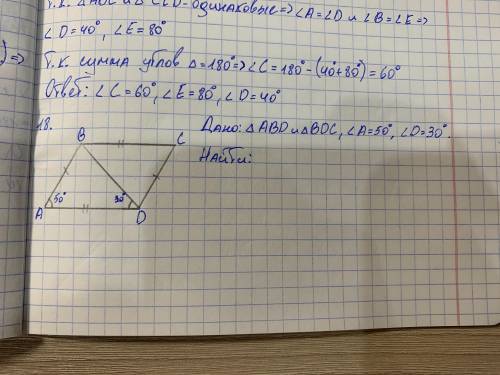 Т.к. △АОС и △ - одинаковые => ∠A=∠D и ∠B=∠E =>
∠D=40°, ∠E=80°
) => Т.к. сумма углов △=180° => ∠C=180°-(40°+80°)=60°
Ответ: ∠C=60°, ∠E=80°, ∠D=40°
18.
Дано: △ABD и △BDC, ∠A=50°, ∠D=30°.
Найти:
B
C
A
50°
30°
D